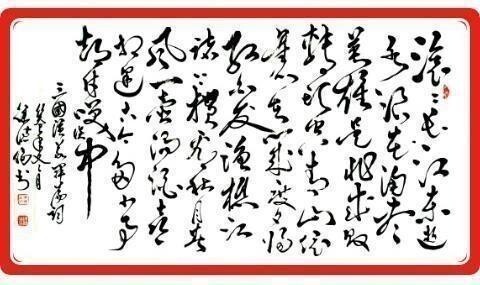 滚滚长江东逝
水浪花淘尽
英雄是非成败
转头空青山依
旧在几度夕阳
红白发渔樵江
渚上惯看秋月春
风一壶浊酒喜
相逢古今多少事
都付笑谈中
三國演义开篇词